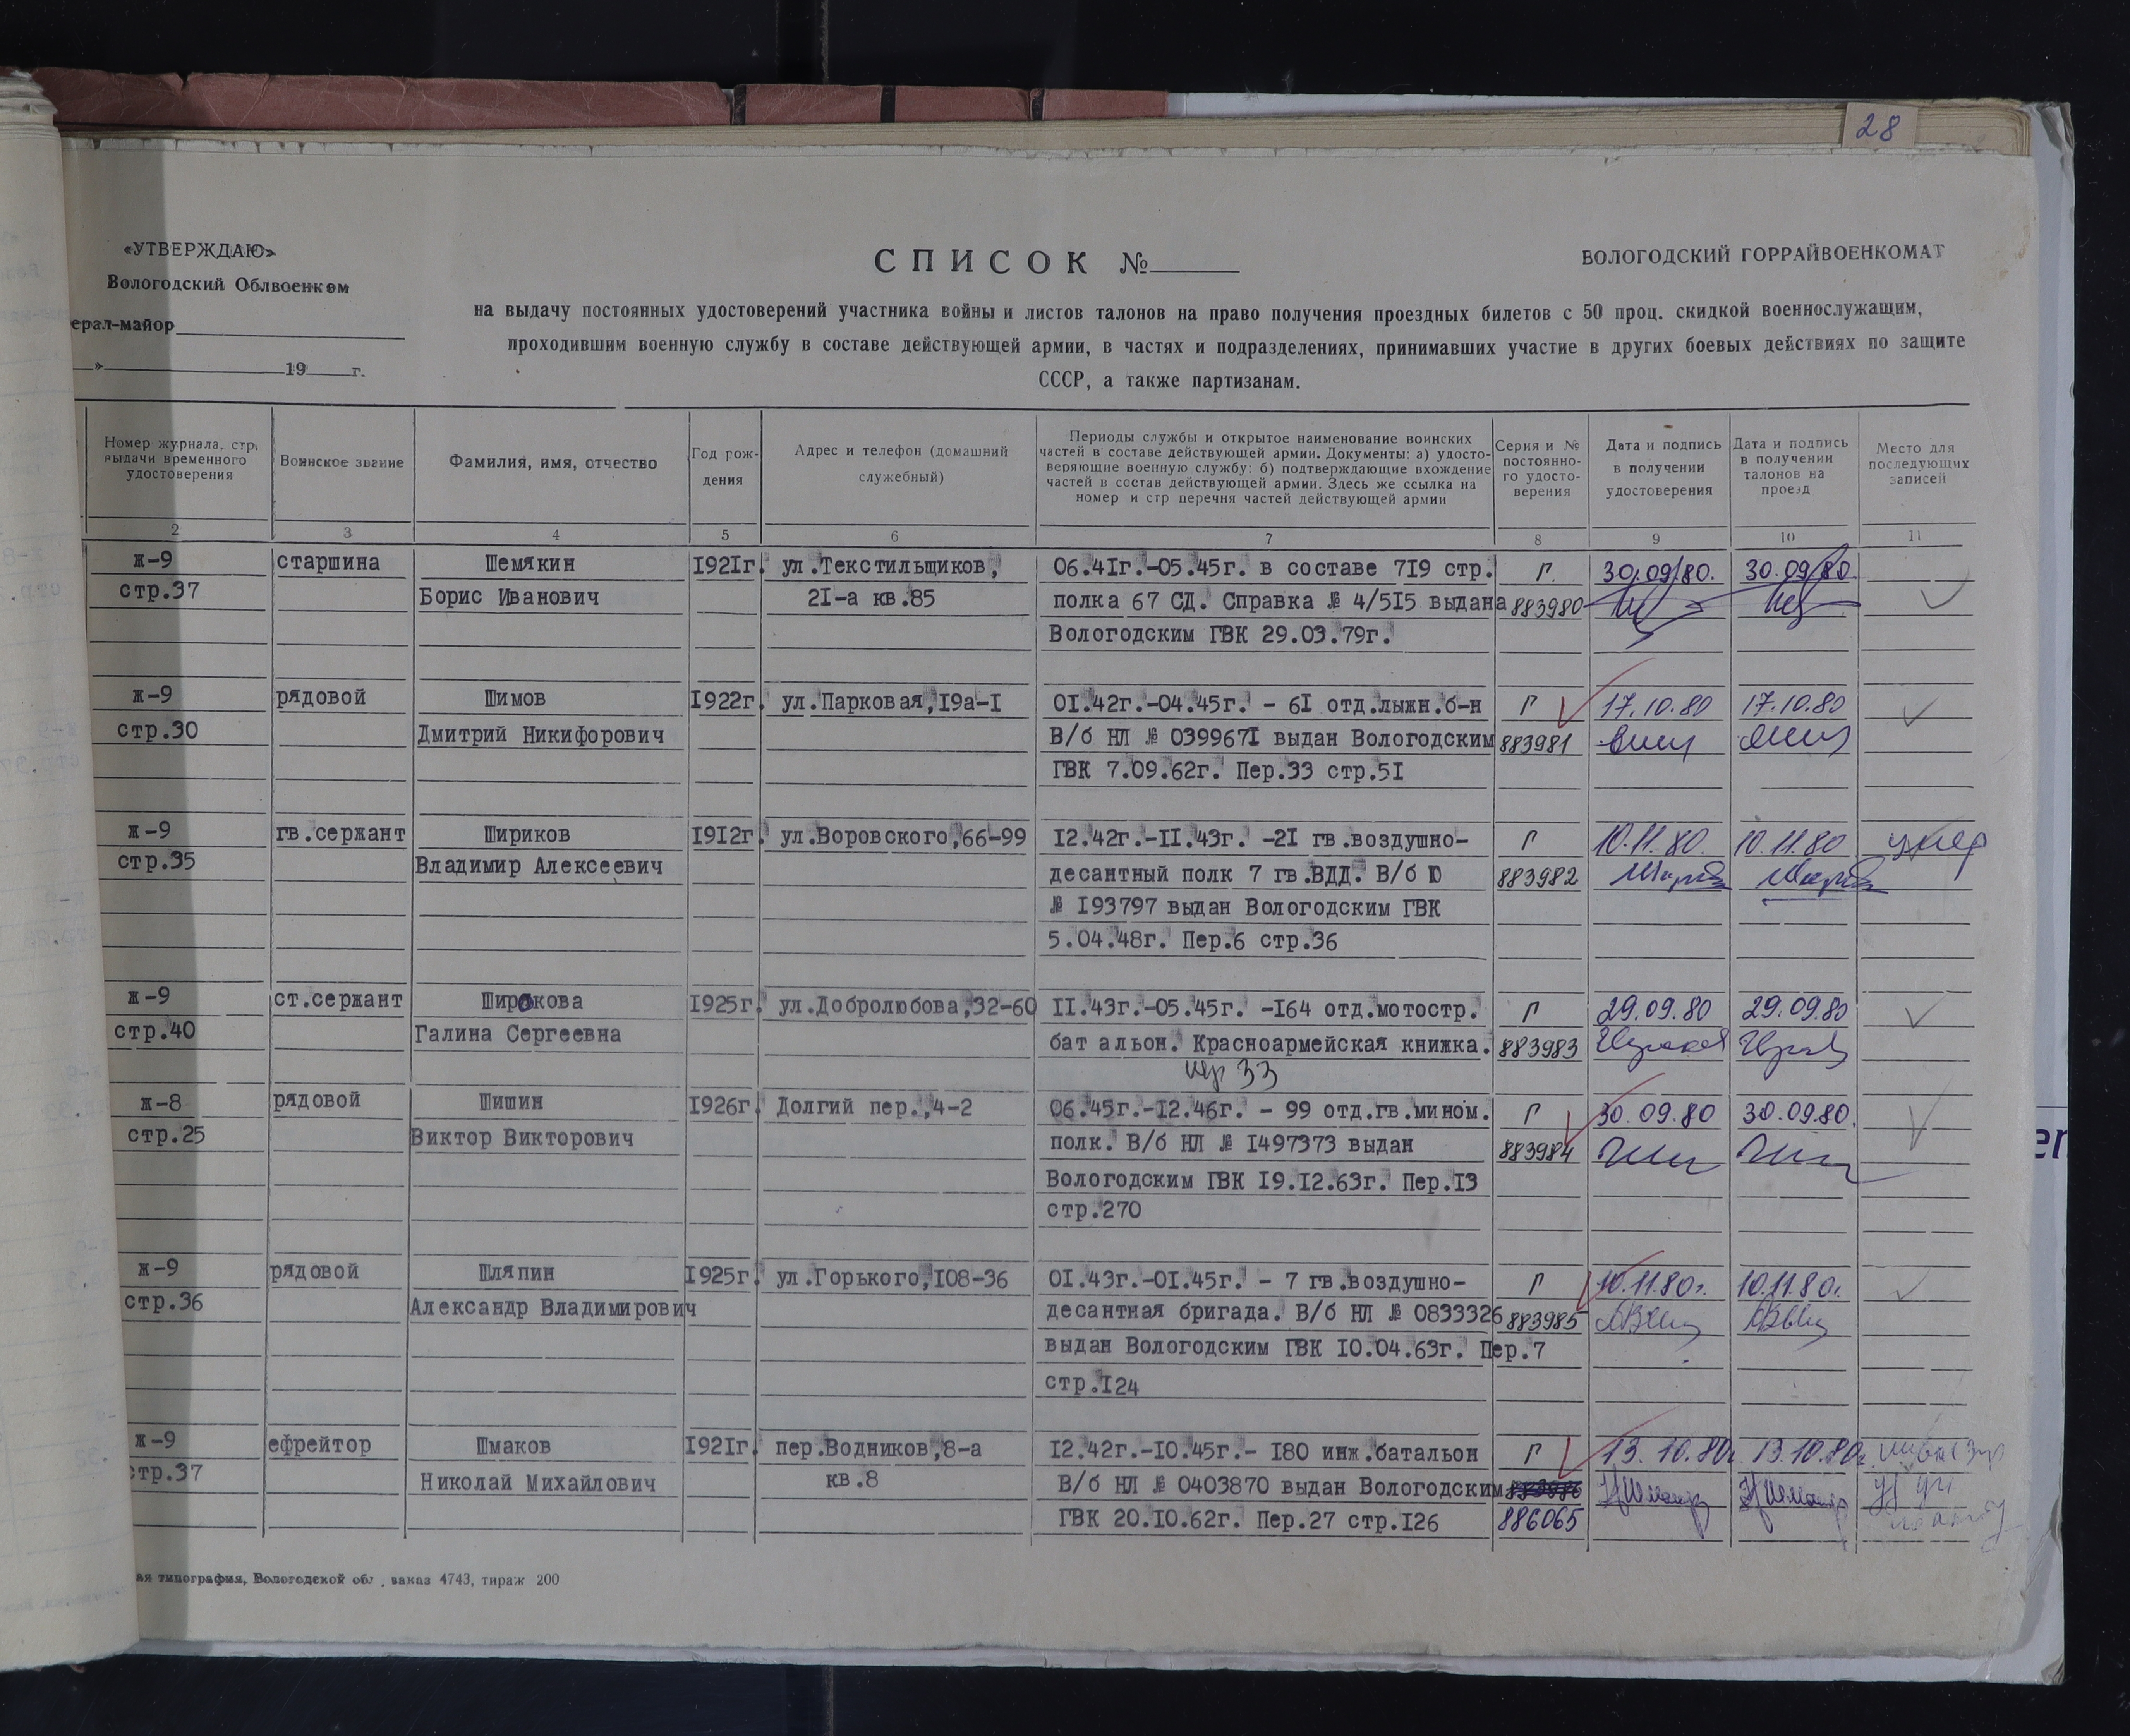 28
«УТВЕРЖДАЮ»
Вологодский Облвоенком
ерал-майор
» 19 г.
СПИСОК №
ВОЛОГОДСКИЙ ГОРРАЙВОЕНКОМАТ
на выдачу постоянных удостоверений участника войны и листов талонов на право получения проездных билетов с 50 проц. скидкой военнослужащим,
проходившим военную службу в составе действующей армии, в частях и подразделениях, принимавших участие в других боевых действиях по защите
СССР, а также партизанам.
Номер журнала, стр. выдачи временного удостоверения
Воинское звание
Фамилия, имя, отчество
Год рождения
Адрес и телефон (домашний служебный)
Периоды службы и открытое наименование воинских
частей в составе действующей армии. Документы: а) удосто-
веряющие военную службу: б) подтверждающие вхождение
частей в состав действующей армии. Здесь же ссылка на
номер и стр перечня частей действующей армии
Серия и № постоянно-го удосто-верения
Дата и подпись в получении удостоверения
Дата и подпись в получении талонов на проезд
Место для последующих записей
2 3 4 5 6 7 8 9 10 11
ж-9 старшина Шемякин 1921г. ул.Текстильщиков, 06.41г.-05.45г. в составе 719 стр. Г 30.09.80. 30.09.80.
стр.37 Борис Иванович 21-а кв.85 полка 67 СД. Справка № 4/515 выдана 883980
Вологодским ГВК 29.03.79г.
ж-9 рядовой Шимов 1922г. ул.Парковая,19а-1 01.42г.-04.45г. - 61 отд.лыжн.б-н Г 17.10.80 17.10.80
стр.30 Дмитрий Никифорович В/б НЛ № 0399671 выдан Вологодским 883981
ГВК 7.09.62г. Пер.33 стр.51
ж-9 гв.сержант Шириков 1912г. ул.Воровского,66-99 12.42г.-11.43г. -21 гв.воздушно- Г 10.11.80. 10.11.80 умер
стр.35 Владимир Алексеевич десантный полк 7 гв.ВДД. В/б Ю 883982
№ 193797 выдан Вологодским ГВК
5.04.48г. Пер.6 стр.36
ж-9 ст.сержант Широкова 1925г. ул.Добролюбова,32-60 11.43г.-05.45г. -164 отд.мотостр. Г 29.09.80 29.09.80
стр.40 Галина Сергеевна бат альон. Красноармейская книжка. 883983
пер 33
ж-8 рядовой Шишин 1926г. Долгий пер.,4-2 06.45г.-12.46г. - 99 отд.гв.мином. Г 30.09.80 30.09.80.
стр.25 Виктор Викторович полк. В/б НЛ № 1497373 выдан 883984
Вологодским ГВК 19.12.63г. Пер.13
стр.270
ж-9 рядовой Шляпин 1925г. ул.Горького,108-36 01.43г.-01.45г. - 7 гв.воздушно- Г 10.11.80г. 10.11.80г.
стр.36 Александр Владимирович десантная бригада. В/б НЛ № 0833326 883985
выдан Вологодским ГВК 10.04.63г. Пер.7
стр.124
ж-9 ефрейтор Шмаков 1921г. пер.Водников,8-а 12.42г.-10.45г.- 180 инж.батальон Г 13.10.80г. 13.10.80г.
стр.37 Николай Михайлович кв.8 В/б НЛ № 0403870 выдан Вологодским 883986
ГВК 20.10.62г. Пер.27 стр.126 886065
ая типография, Вологодской обл., заказ 4743, тираж 200